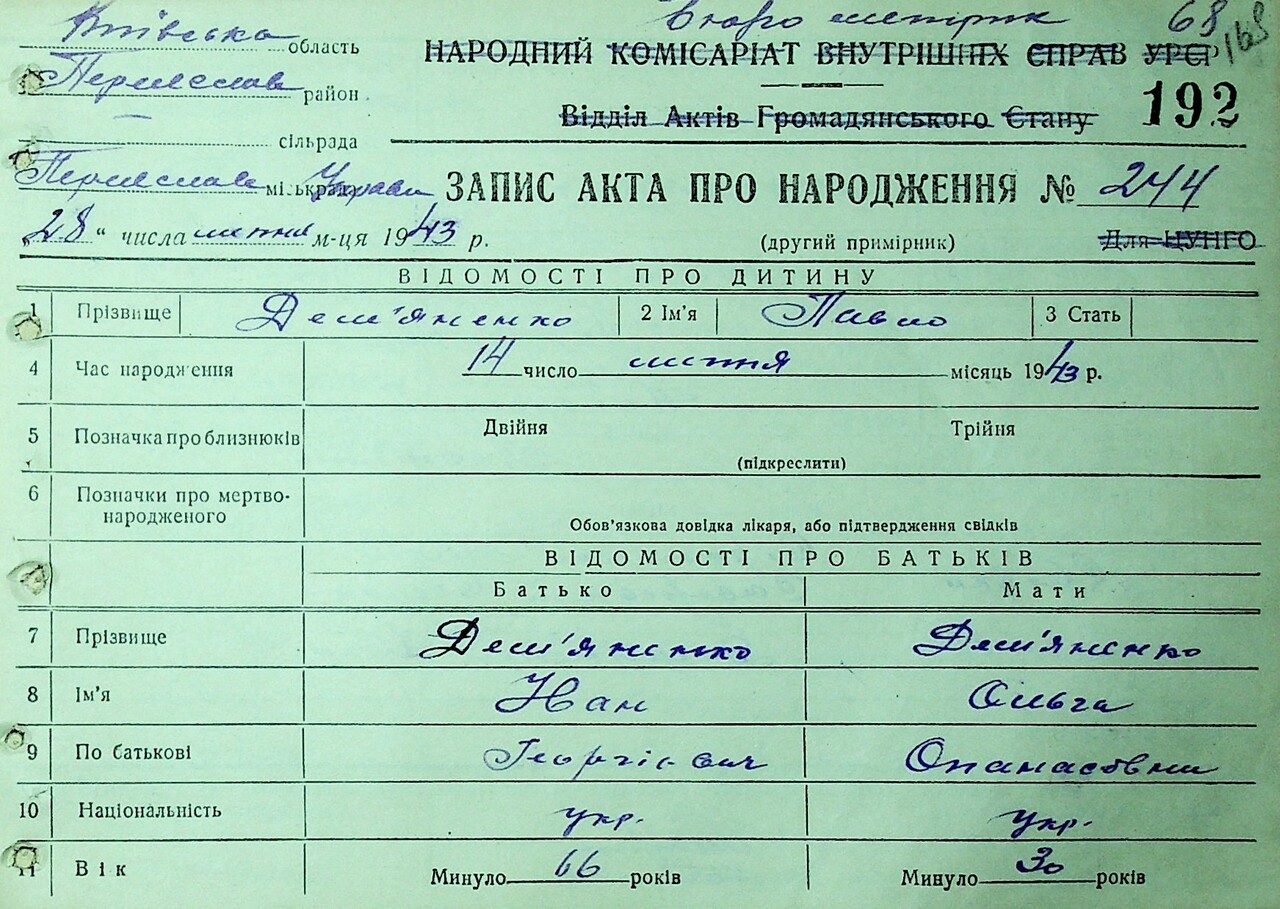 Київська область
Бюро метрик
68
168
НАРОДНИЙ КОМІСАРІАТ ВНУТРІШНІХ СПРАВ УРСР
Переяслав район
Відділ Актів Громадянського Стану
192
сільрада
Переяслав міськрада Управа
ЗАПИС АКТА ПРО НАРОДЖЕННЯ № 244
„28“ числа липня м-ця 1943 р.
(другий примірник)
Для ЦУНГО
ВІДОМОСТІ ПРО ДИТИНУ
1 Прізвище Дем'яненко 2 Ім'я Павло 3 Стать
4 Час народження 14 число липня місяць 1943 р.
5 Позначка про близнюків Двійня Трійня
(підкреслити)
6 Позначки про мертво-
народженого
Обов'язкова довідка лікаря, або підтвердження свідків
ВІДОМОСТІ ПРО БАТЬКІВ
Батько Мати
7 Прізвище Дем'яненко Дем'яненко
8 Ім'я Іван Ольга
9 По батькові Георгієвич Опанасовна
10 Національність укр. укр.
11 Вік Минуло 66 років Минуло 30 років